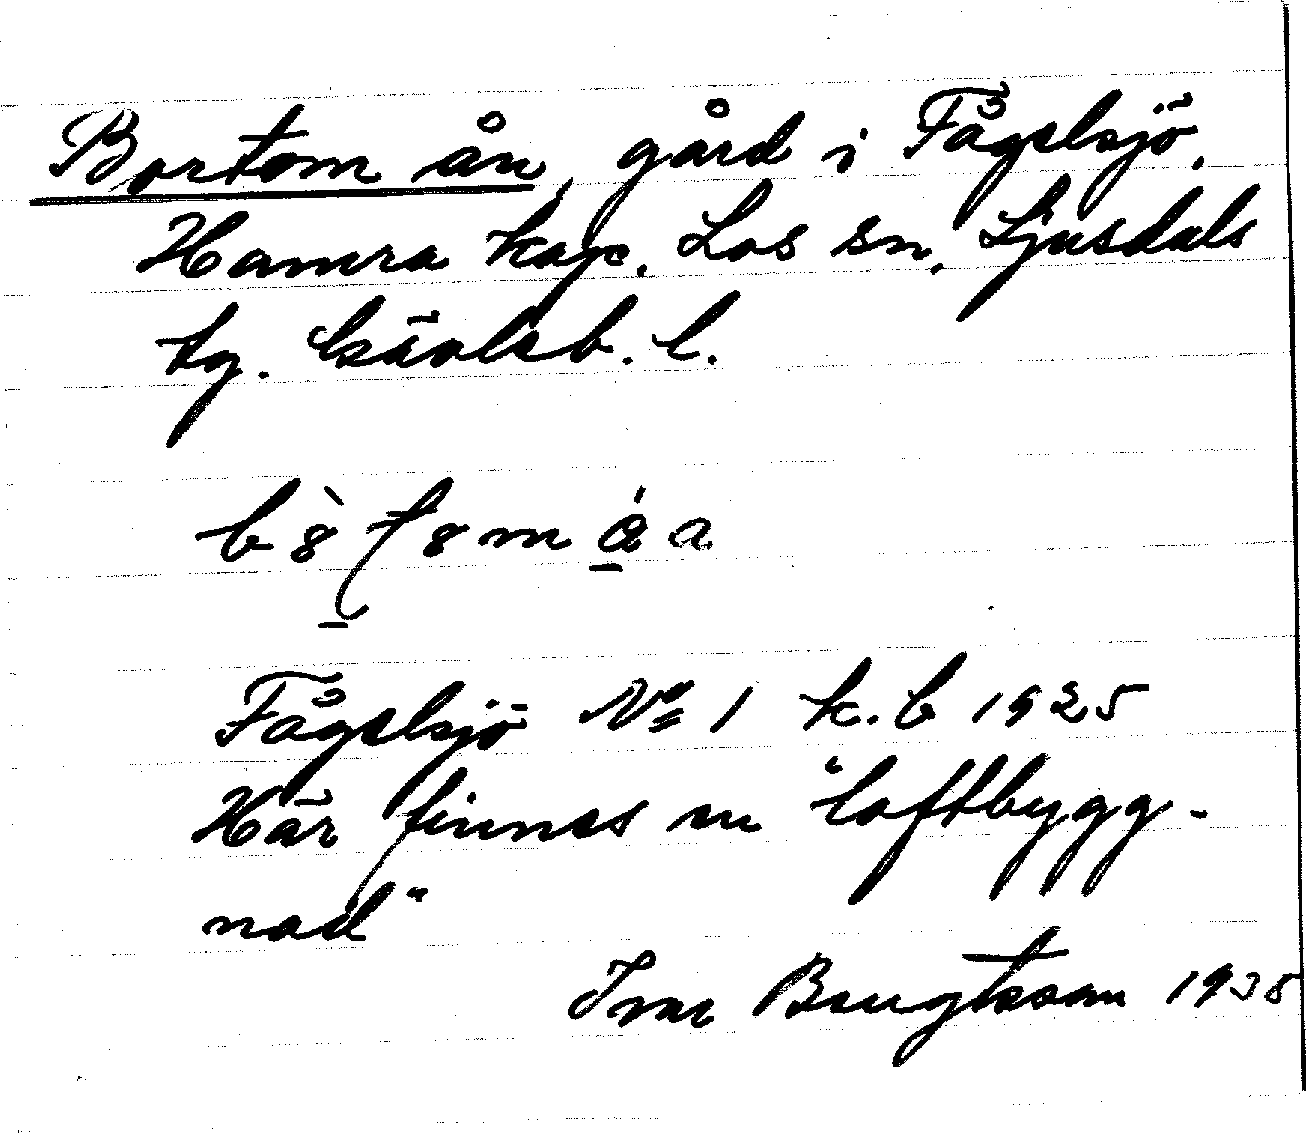 Bortom ån, gård i Fågelsjö,
Hamra kap. Los sn, Ljusdals
tg. Gävleb. l.
Fågelsjö No 1 k.b 1925
Här finnes en "loftbygg-
nad"
Ivar Bengtsson 1935